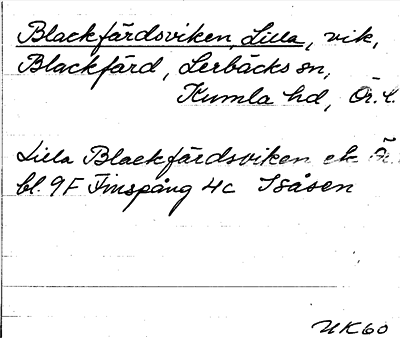 Blackfärdsviken, Lilla, vik,
Blackfärd, Lerbäcks sn,
Kumla hd, Ör. l.
Lilla Blackfärdsviken ek. Ör.
bl. 9F Finspång 4c Isåsen
UK60